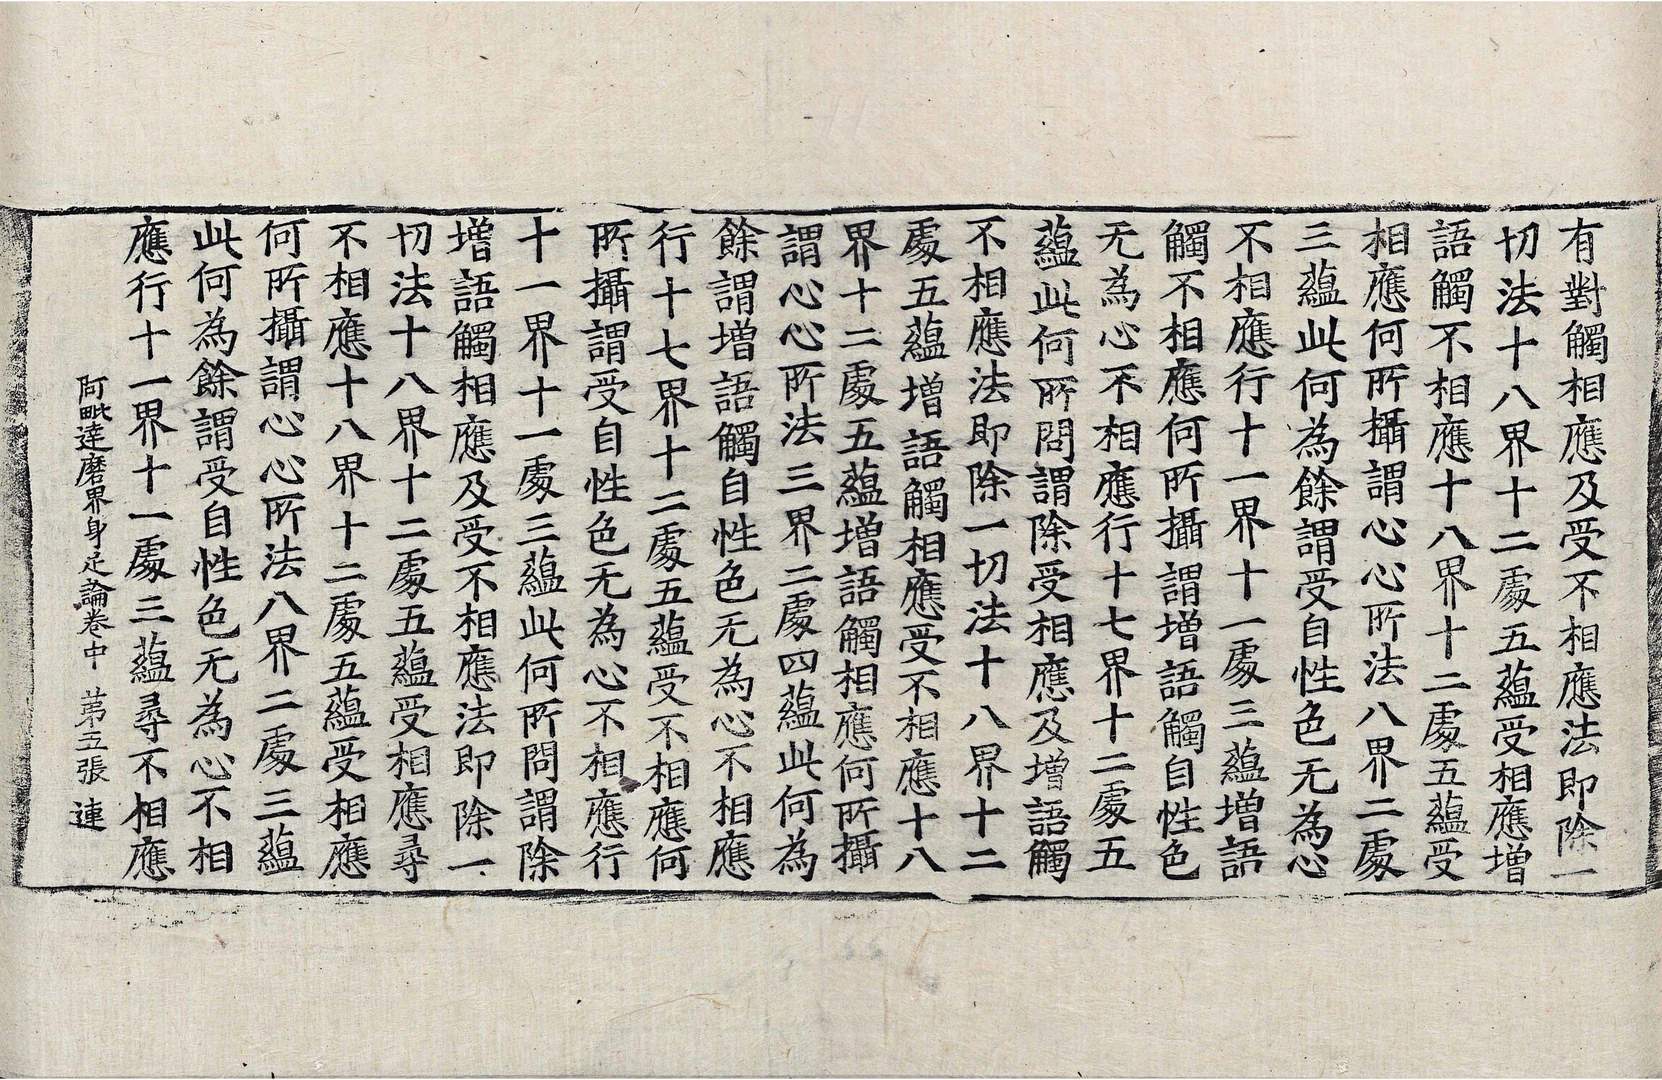 有對觸相應及受不相應法即除一
切法十八界十二處五蘊受相應增
語觸不相應十八界十二處五蘊受
相應何所攝謂心心所法八界二處
三蘊此何為餘謂受自性色无為心
不相應行十一界十一處三蘊增語
觸不相應何所攝謂增語觸自性色
无為心不相應行十七界十二處五
蘊此何所問謂除受相應及增語觸
不相應法即除一切法十八界十二
處五蘊增語觸相應受不相應十八
界十二處五蘊增語觸相應何所攝
謂心心所法三界二處四蘊此何為
餘謂增語觸自性色无為心不相應
行十七界十二處五蘊受不相應何
所攝謂受自性色无為心不相應行
十一界十一處三蘊此何所問謂除
增語觸相應及受不相應法即除一
切法十八界十二處五蘊受相應尋
不相應十八界十二處五蘊受相應
何所攝謂心心所法八界二處三蘊
此何為餘謂受自性色无為心不相
應行十一界十一處三蘊尋不相應
阿毗達磨界身足論卷中 第五張 連